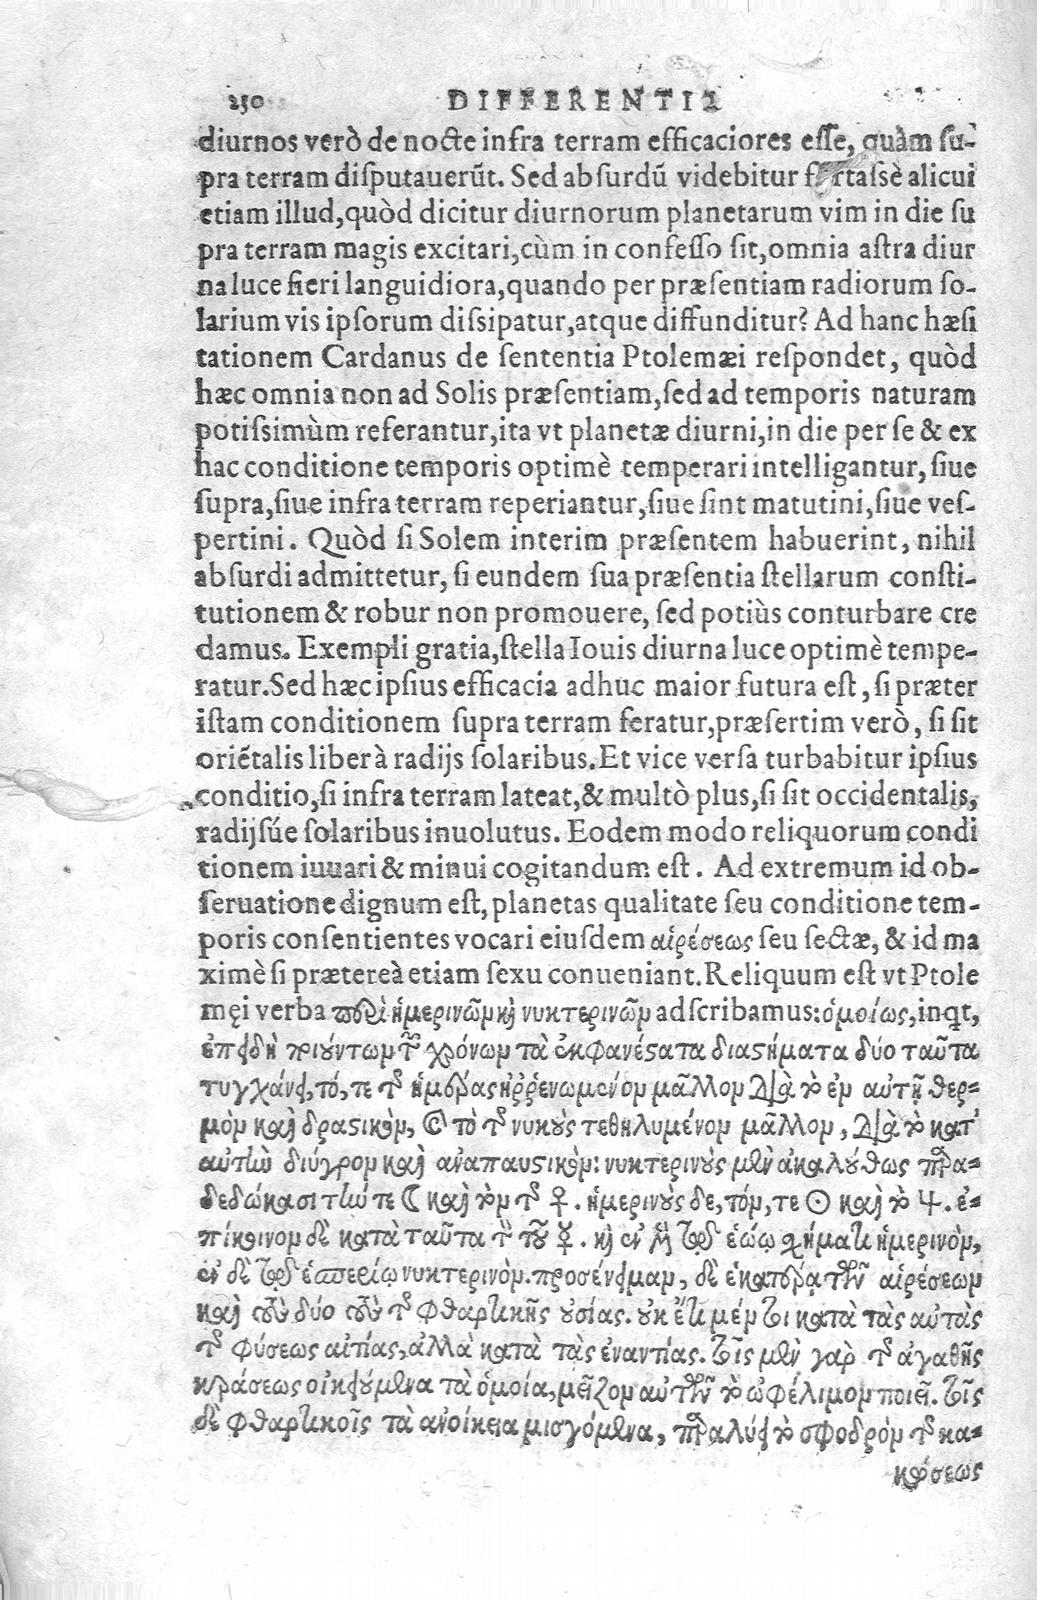 250 DIFFERENTIÆ
diurnos verò de nocte infra terram efficaciores esse, quàm su-
pra terram disputauerũt. Sed absurdũ videbitur fortassè alicui
etiam illud, quòd dicitur diurnorum planetarum vim in die su
pra terram magis excitari, cùm in confesso sit, omnia astra diur
na luce fieri languidiora, quando per præsentiam radiorum so-
larium vis ipsorum dissipatur, atque diffunditur? Ad hanc hæsi
tationem Cardanus de sententia Ptolemæi respondet, quòd
hæc omnia non ad Solis præsentiam, sed ad temporis naturam
potissimùm referantur, ita vt planetæ diurni, in die per se & ex
hac conditione temporis optimè temperari intelligantur, siue
supra, siue infra terram reperiantur, siue sint matutini, siue ves-
pertini. Quòd si Solem interim præsentem habuerint, nihil
absurdi admittetur, si eundem sua præsentia stellarum consti-
tutionem & robur non promouere, sed potiùs conturbare cre
damus. Exempli gratia, stella Iouis diurna luce optimè tempe-
ratur. Sed hæc ipsius efficacia adhuc maior futura est, si præter
istam conditionem supra terram feratur, præsertim verò, si sit
oriẽtalis liber à radijs solaribus. Et vice versa turbabitur ipsius
conditio, si infra terram lateat, & multò plus, si sit occidentalis,
radijsúe solaribus inuolutus. Eodem modo reliquorum condi
tionem iuuari & minui cogitandum est. Ad extremum id ob-
seruatione dignum est, planetas qualitate seu conditione tem-
poris consentientes vocari eiusdem αἱρέσεως seu sectæ, & id ma
ximè si prætereà etiam sexu conueniant. Reliquum est vt Ptole
męi verba περὶ ἡμερινῶν καὶ νυκτερινῶν adscribamus: ὁμοίως, inqt,
ἐπειδὴ ποιούντων τὸν χρόνον τὰ ἐκφανέστατα διαστήματα δύο ταῦτα
τυγχάνει, τό, τε τῆς ἡμέρας ἠρρενωμένον μᾶλλον διὰ τὸ ἐν αὐτῇ θερ-
μὸν καὶ δραστικὸν, καὶ τὸ τῆς νυκτὸς τεθηλυμένον μᾶλλον, διὰ τὸ κατ'
αὐτὴν διύγρον καὶ ἀναπαυστικὸν: νυκτερινοὺς μὲν ἀκολούθως παρα-
δεδώκασι τήν τε ☾ καὶ τὸν τῆς ♀. ἡμερινοὺς δε, τόν, τε ☉ καὶ τὸ ♃. ἐ-
πίκοινον δὲ κατὰ ταῦτα τὸν τοῦ ☿. καὶ ἐν μὲν τῷ ἑώῳ σχήματι ἡμερινὸν,
ἐν δὲ τῷ ἑσπερίῳ νυκτερινὸν. προσένειμαν, δὲ ἑκατέρᾳ τῶν αἱρέσεων
καὶ τοὺς δύο τοὺς τῆς φθαρτικῆς οὐσίας. οὐκ ἔτι μέν τοι κατὰ τὰς αὐτὰς
τῆς φύσεως αἰτίας, ἀλλὰ κατὰ τὰς ἐναντίας. τοῖς μὲν γὰρ τῆς ἀγαθῆς
κράσεως οἰκειούμενα τὰ ὁμοία, μεῖζον αὐτῶν τὸ ὠφέλιμον ποιεῖ. τοῖς
δὲ φθαρτικοῖς τὰ ἀνοίκεια μισγόμενα, παραλύει τὸ σφοδρὸν τῆς κα-
κώσεως